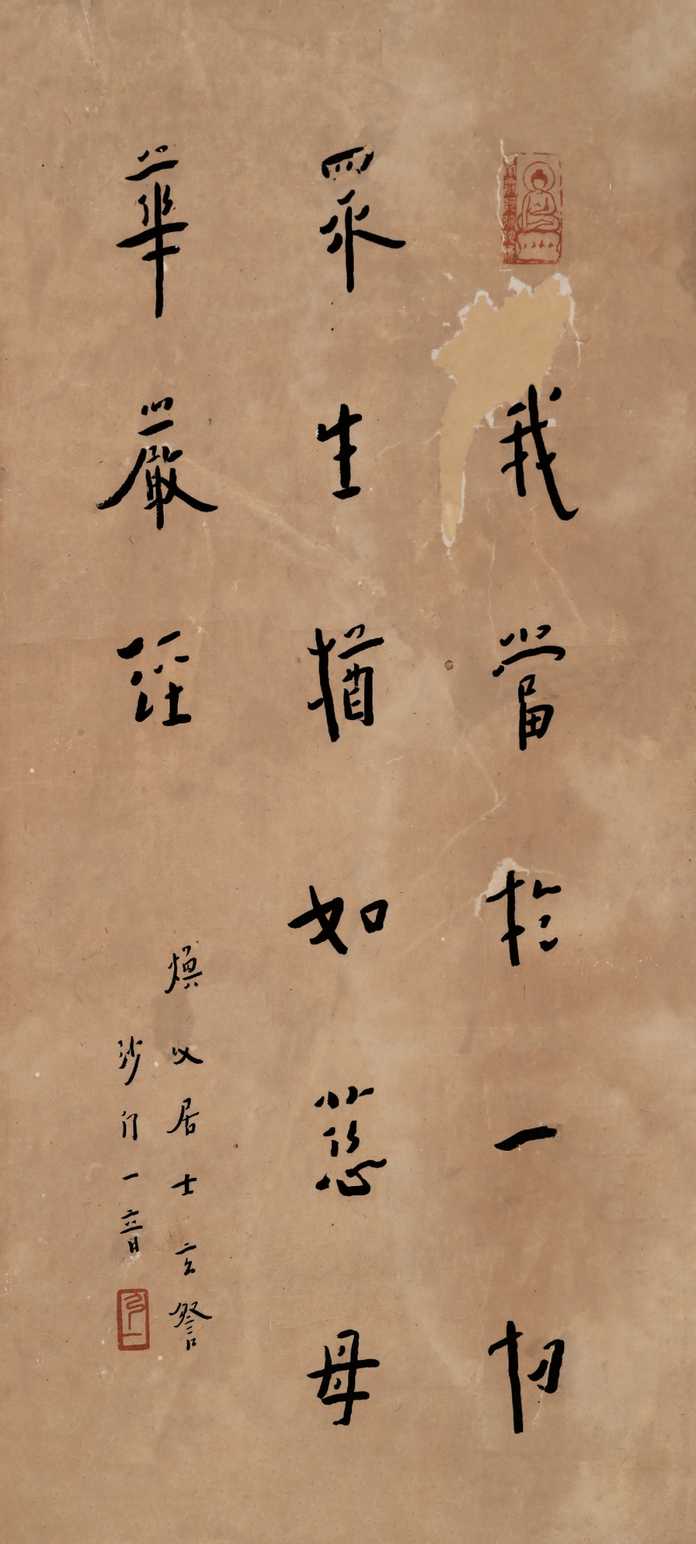 我當於一切
眾生猶如慈母
華嚴經
煥文居士玄詧
沙門一音